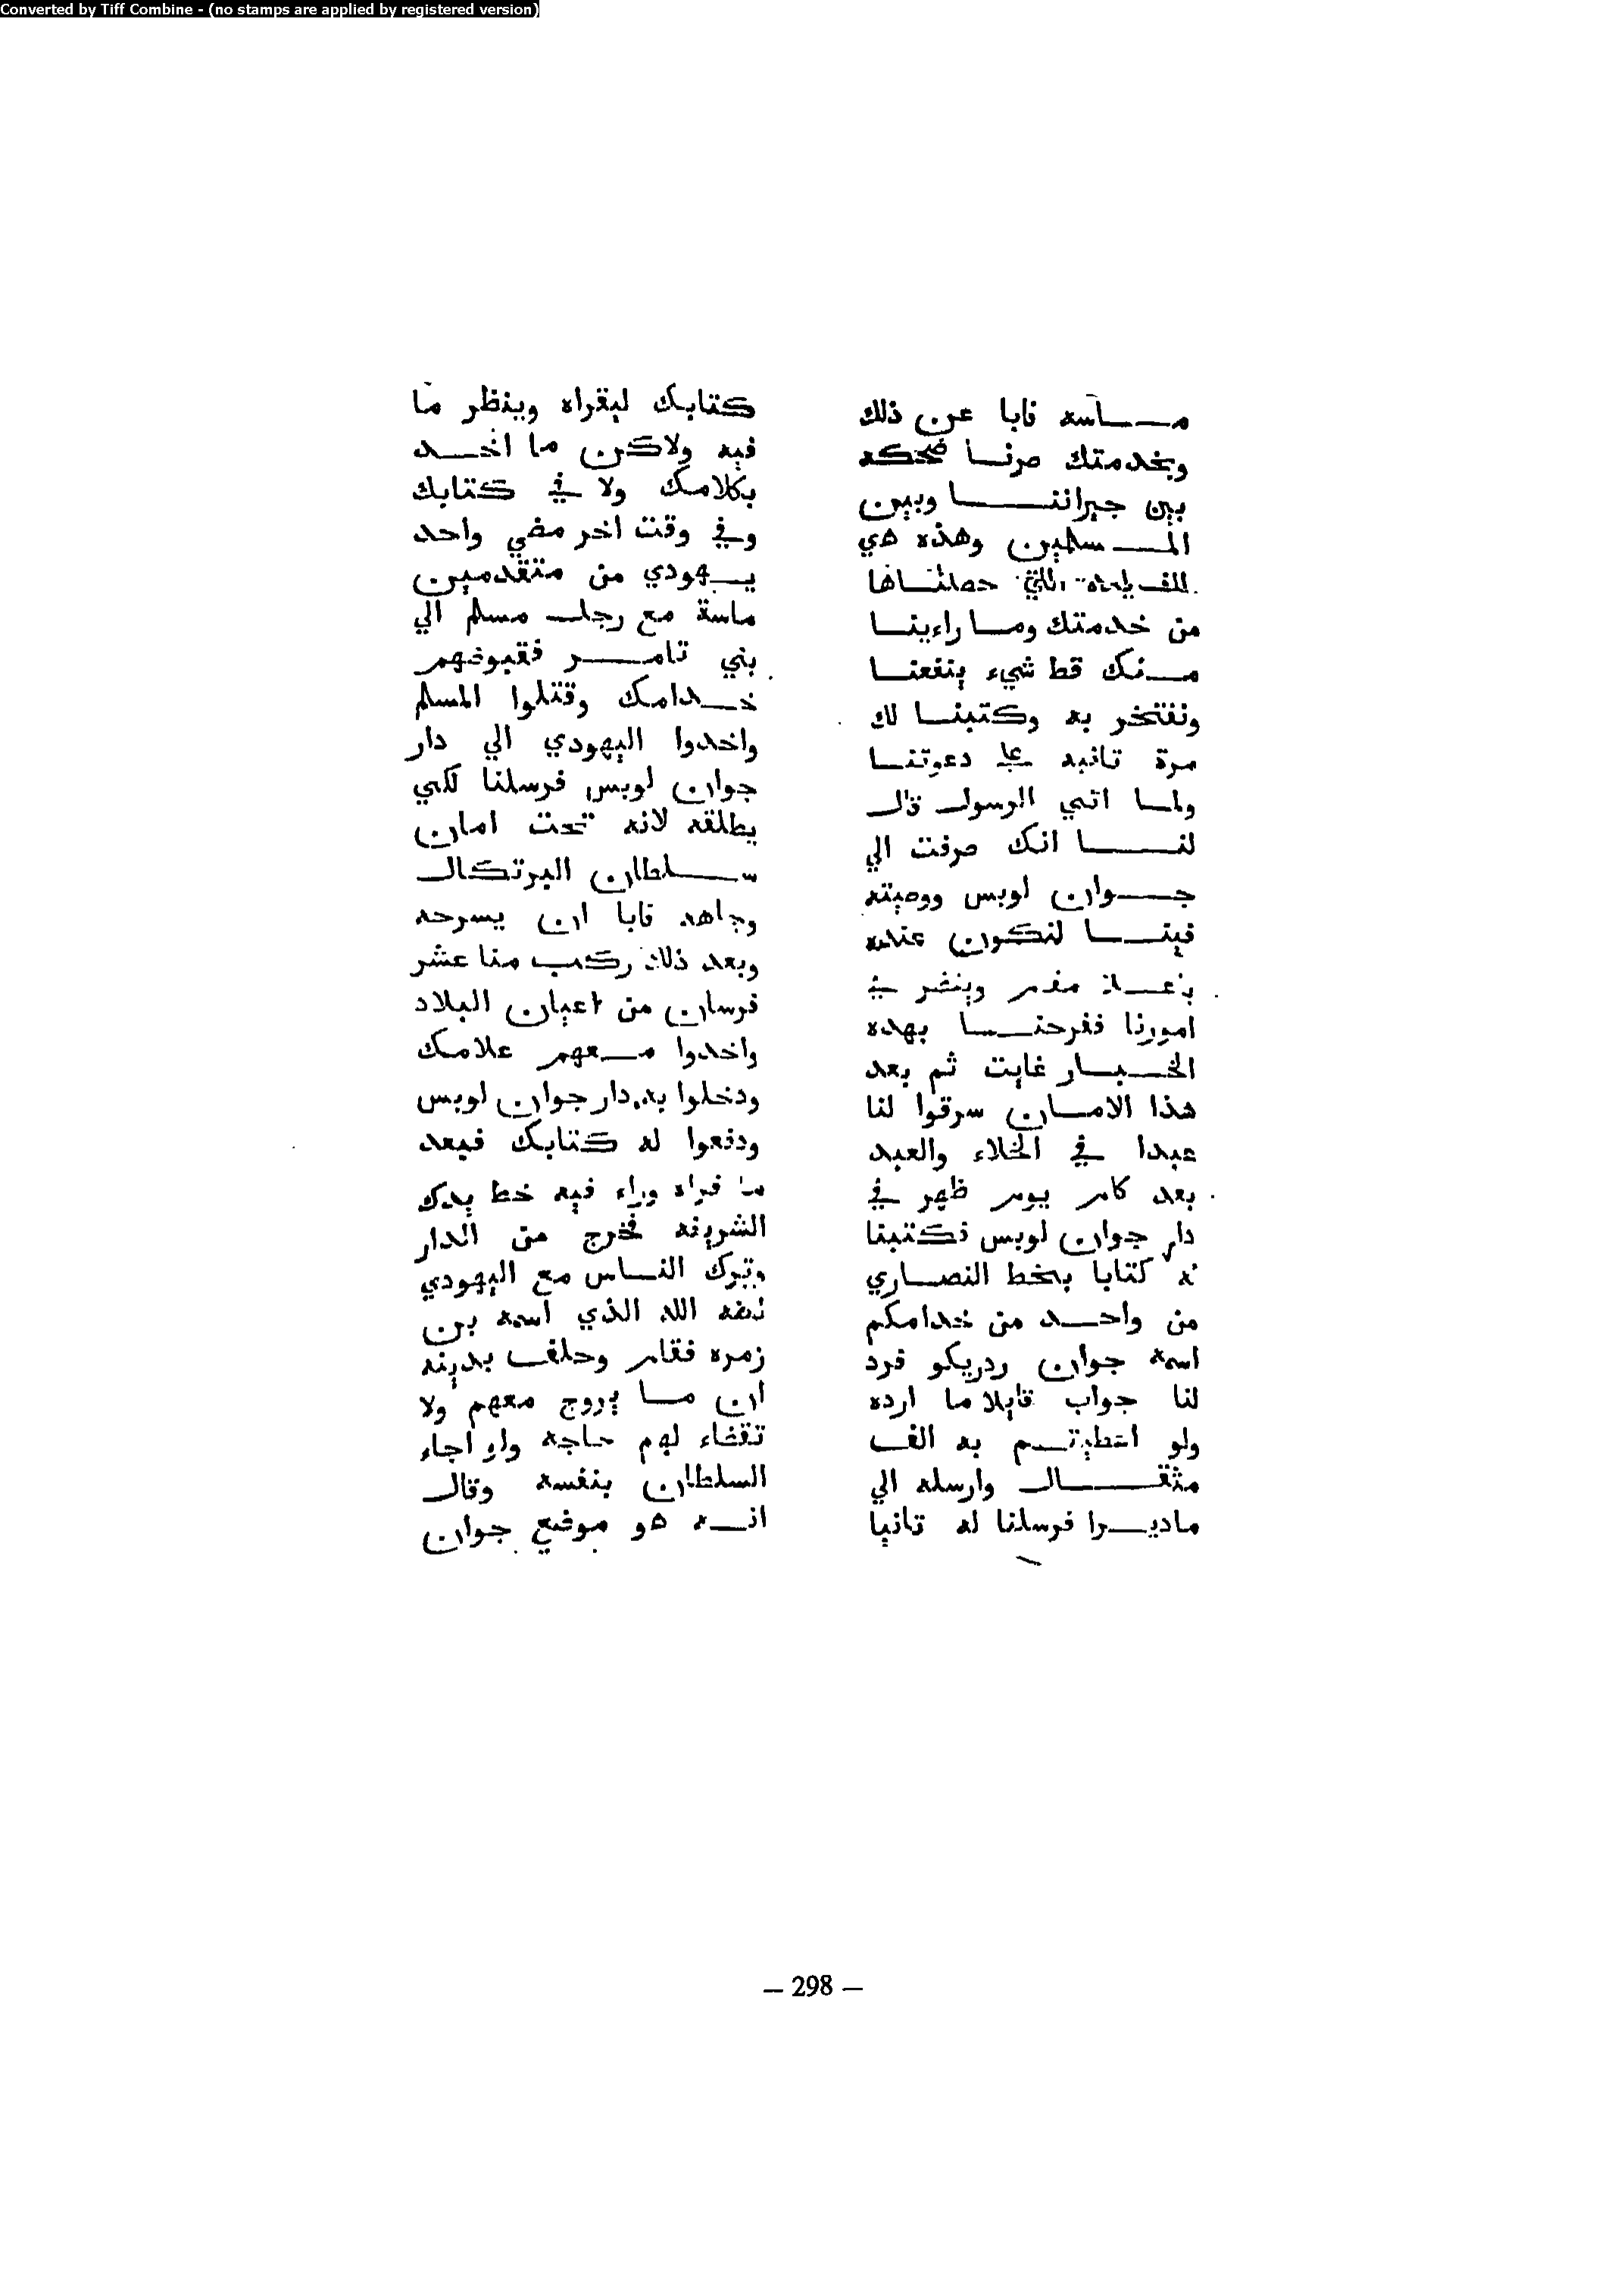 Converted by Tiff Combine - (no stamps are applied by registered version)
مــاسه فابا عن ذلك
وبخدمتك صرنــا ضحكه
بين جيراننــا وبين
المــسلمين وهذه هي
حصلنــاها
من خدمتك ومــا راءينــا
مــنك قط شيء ينفعنــا
ونفتخر به وكتبنــا لك
مرة تانيه علي دعوتنــا
ولمــا اتي الرسول قال
لنــا انك صرفت الي
جــوان لوبس ووصيته
فينــا لنكون عنده
وينضر في
امورنا ففرحنــا بهده
الخــبــار غايت ثم بعد
هذا الامــان سرقوا لنا
عبدا في الخلاء والعبد
بعد كام يوم ظهر في
دار جوان لوبس فكتبنا
له كتابا بخط النصــاري
من واحــد من خدامكم
اسمه جوان ردريكو فرد
لنا جواب قايلا ما ارده
ولو اعطيتــم به الف
مثقــال وارسله الي
ماديــرا فرسلنا له تانيا
كتابك ليقراه وينظر ما
فيه ولاكن ما اخــد
بكلامك ولا في كتابك
وفي وقت اخر مضي واحد
يــهودي من متقدمين
ماسة مع رجل مسلم الي
بني تامــر فقبوضهم
خــدامك وقتلوا المسلم
واخدوا اليهودي الي دار
جوان لوبس فرسلنا لكي
يطلقه لانه تحت امان
ســلطان البرتكال
وجاهد فابا ان يسرحه
وبعد ذلك ركب منا عشر
فرسان من اعيان البلاد
واخدوا مــعهم علامك
ودخلوا به دار جوان لوبس
ودفعوا له كتابك فبعد
ما قراه وراء فيه خط يدك
الشريفه فخرج من الدار
وترك النــاس مع اليهودي
لضه الله الذي اسمه بن
زمره فقام وحلف بدينه
ان مــا يروج معهم ولا
تقضاء لهم حاجه ولو اجاء
السلطان بنفسه وقال
انــه هو موضع جوان
— 298 —